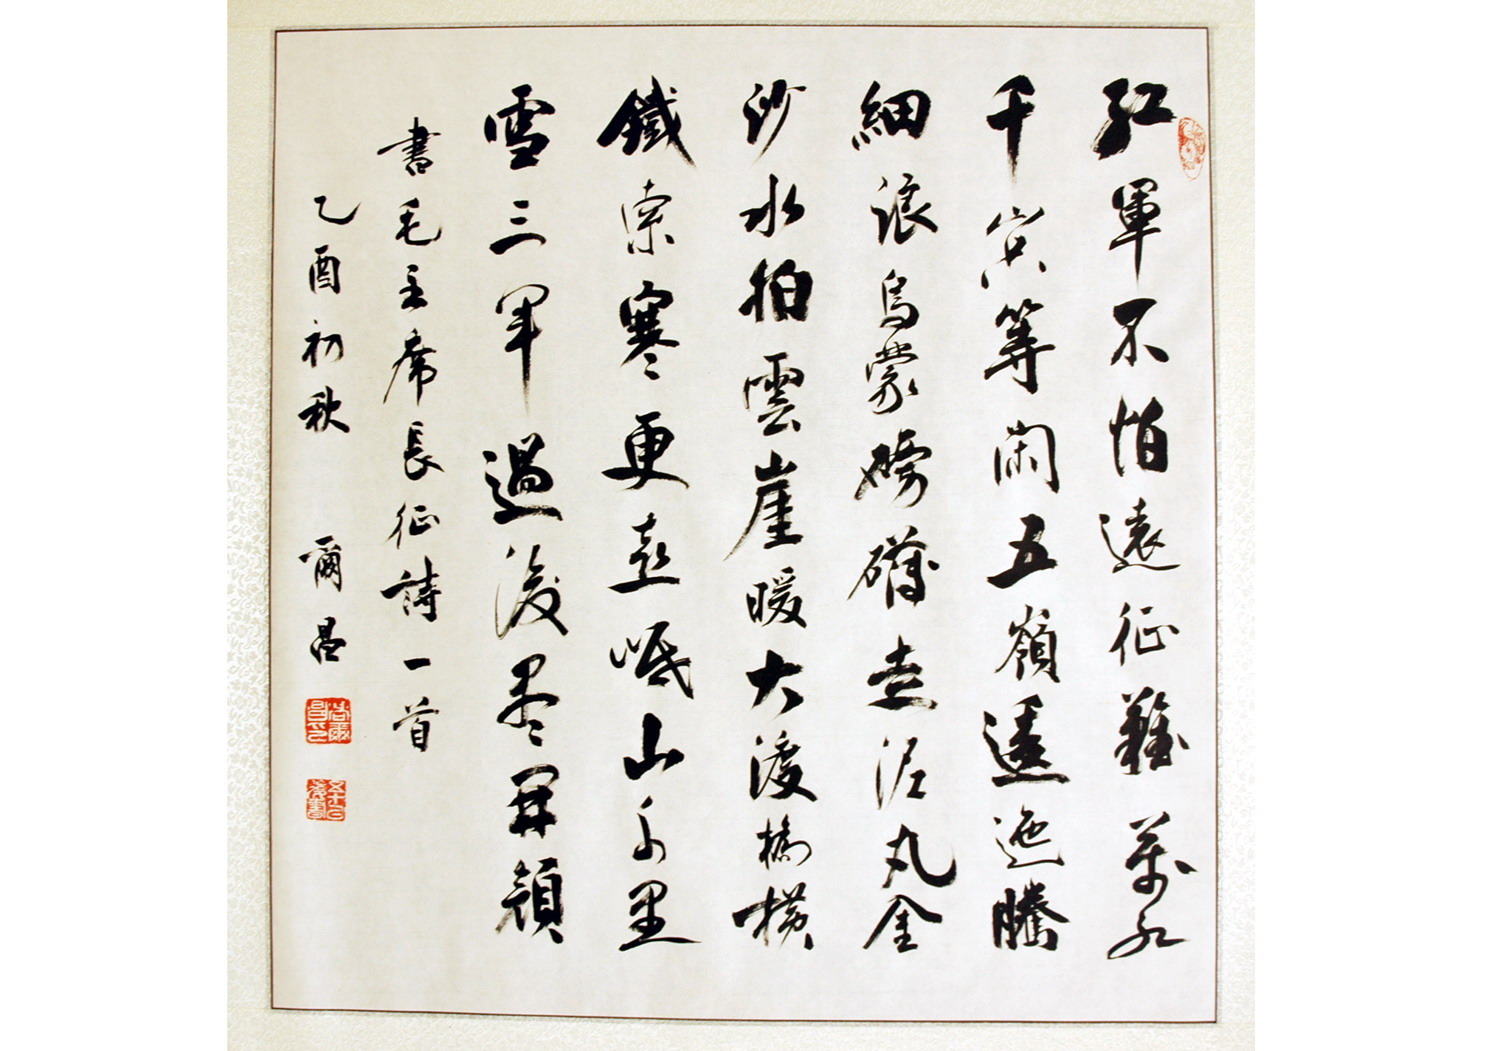 紅軍不怕遠征難萬水
千山只等閑五嶺逶迤騰
細浪烏蒙磅礴走泥丸金
沙水拍雲崖暖大渡橋橫
鐵索寒更喜岷山千里
雪三軍過後尽開顏
書毛主席長征詩一首
乙酉初秋 爾昌